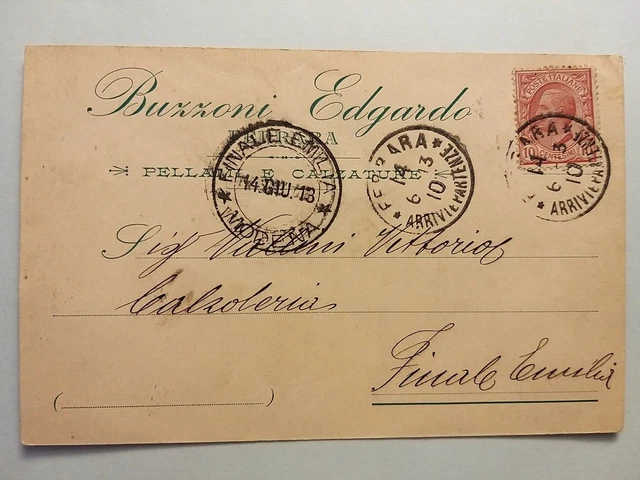 Buzzoni Edgardo
FERRARA
PELLAMI E CALZATURE
POSTE ITALIANE
10 CENTESIMI
FINALE EMILIA
14.GIU.13
(MODENA)
FERRARA
14
6 13
10
ARRIVI E PARTENZE
FERRARA
14
6 13
10
ARRIVI E PARTENZE
Sig Vittorio
Calzoleria
Finale Emilia